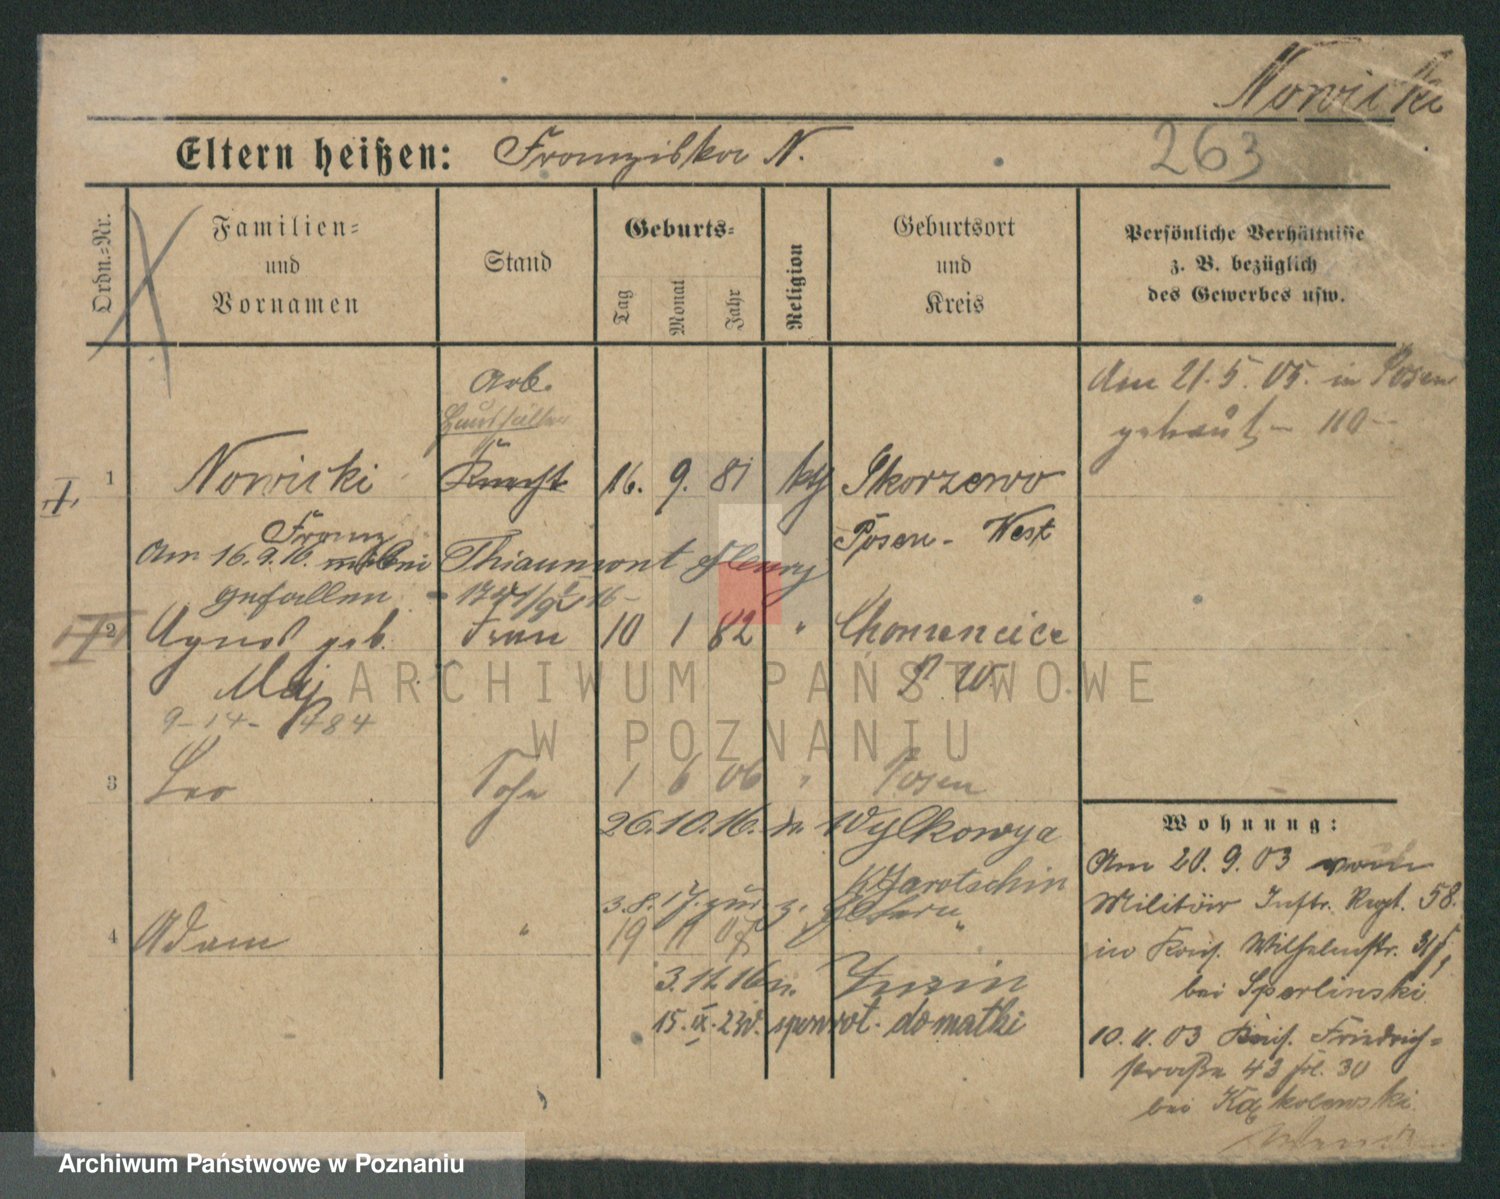 Nowicki
263
Eltern heißen: Franziska N.
Ordn.-Nr.
Familien-
und
Vornamen
Stand
Geburts-
Tag
Monat
Jahr
Religion
Geburtsort
und
Kreis
Persönliche Verhältnisse
z. B. bezüglich
des Gewerbes usw.
Arb.
Haushälter
Am 21.5.05. in Posen
getraut – 110 –
1 Nowicki Knecht 16. 9. 81 kth Skorzewo
Franz
Posen - West
Am 16.9.16. bei Thiaumont Fleury
gefallen
2 Agnes geb. Frau 10 1 82 " Chomencice
Maj
P. W.
9-14- 1484
3 Leo Sohn 1 6 06 " Posen
26.10.16. n. Wylkowya
K Jarotschin
3.8.17. zur. z. Eltern
4 Adam " 19 11 07 " "
3.11.16 n. Znin
15.IX.21r. spowrot. do matki
Wohnung:
Am 20.9.03 vom
Militär Inftr. Regt. 58.
in Kais. Wilhelmstr. 31
bei Sperlinski
10.11.03 Kais. Friedrich-
straße 43 frl. 30
bei Kąkolewski
ARCHIWUM PAŃSTWOWE
W POZNANIU
Archiwum Państwowe w Poznaniu